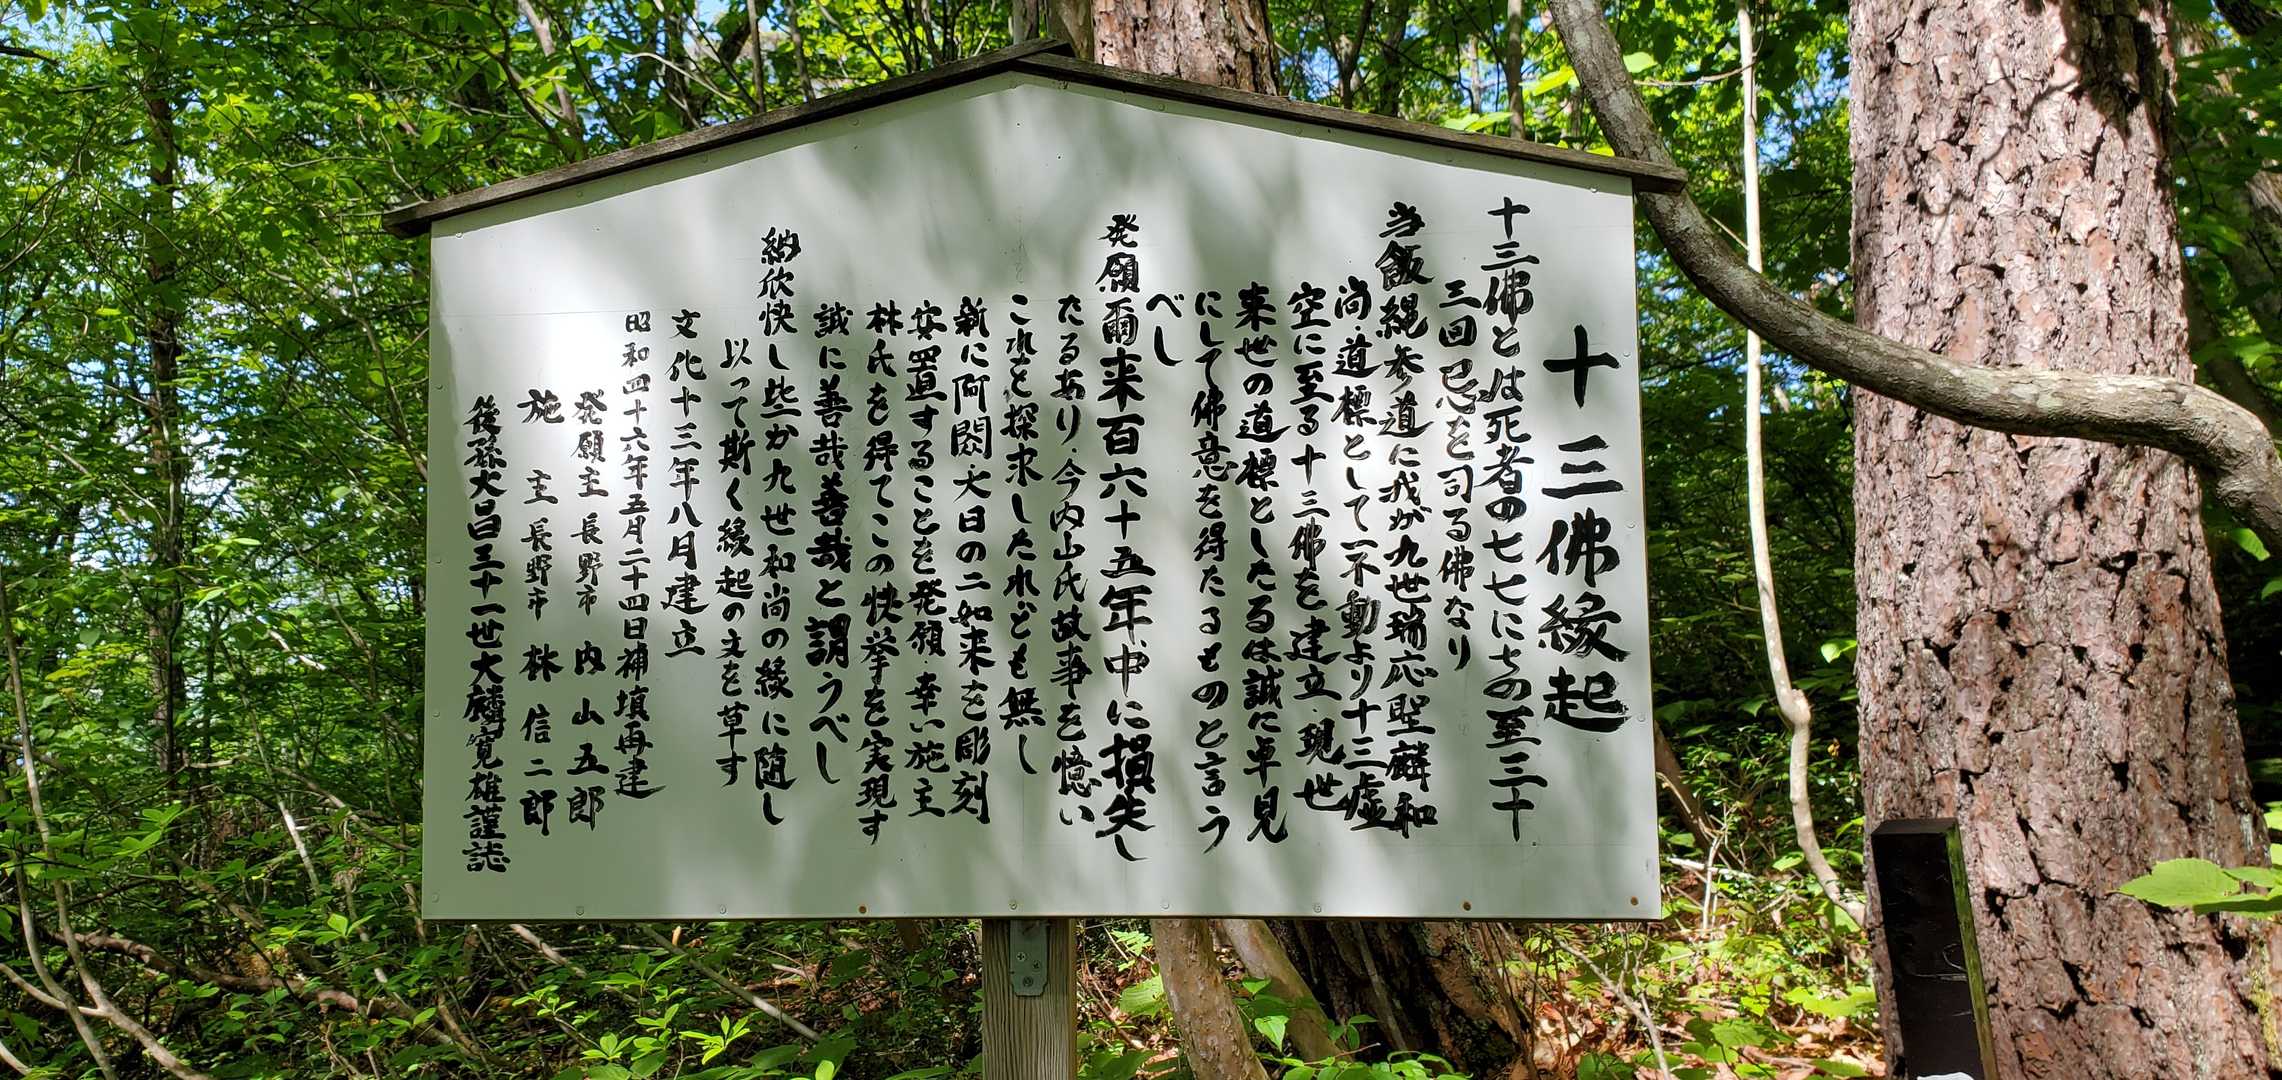 十三佛縁起
十三佛とは死者の七七に至り至三十
三回忌を司る佛なり
当飯縄参道に我が九世瑞応聖麟和
尚・道標として一不動より十三虚
空に至る十三佛を建立・現世
来世の道標としたるは誠に卓見
にして佛意を得たるものと言う
べし
発願爾来百六十五年、中に損失し
たるあり・今内山氏故事を憶い
これを探求したれども無し
新に阿閦・大日の二如来を彫刻
安置することを発願・幸い施主
林氏を得てこの快挙を実現す
誠に善哉善哉と謂うべし
衲欣快し些か九世和尚の縁に随し
以って斯く縁起の文を草す
文化十三年八月建立
昭和四十六年五月二十四日補填再建
発願主 長野市 内山五郎
施主 長野市 林信二郎
後孫大昌三十一世大麟寛雄謹誌